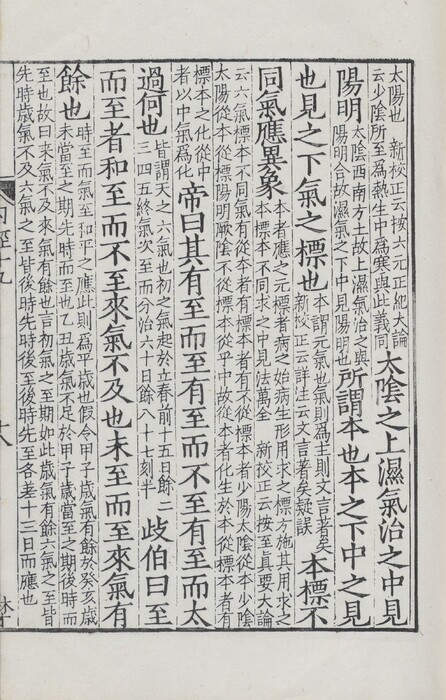 太陽也 新校正云按六元正紀大論
云少陰所至為熱生中為寒與此義同
太陰之上濕氣治之中見
陽明
太陰西南方土故上濕氣治之與
陽明合故濕氣之下中見陽明也
所謂本也本之下中之見
也見之下氣之標也
本謂元氣也氣則為主則文言著矣
新校正云詳注云文言著矣疑誤
本標不
同氣應異象
本者應之元標者病之始病生形用求之標方施其用求之
本標本不同求之中見法萬全 新校正云按至真要大論
云六氣標本不同氣有從本者有從標本者有不從標本者少陽太陰從本少陰
太陽從本從標陽明厥陰不從標本從乎中故從本者化生於本從標本者有
標本之化從中
者以中氣為化
帝曰其有至而至有至而不至有至而太
過何也
皆謂天之六氣也初之氣起於立春前十五日餘二
三四五終氣次至而分治六十日餘八十七刻半
歧伯曰至
而至者和至而不至來氣不及也未至而至來氣有
餘也
時至而氣至和平之應此則為平歲也假令甲子歲氣有餘於癸亥歲
未當至之期先時而至也乙丑歲氣不足於甲子歲當至之期後時而
至也故曰來氣不及來氣有餘也言初氣之至期如此歲氣有餘六氣之至皆
先時歲氣不及六氣之至皆後時先時後至後時先至各差十三日而應也